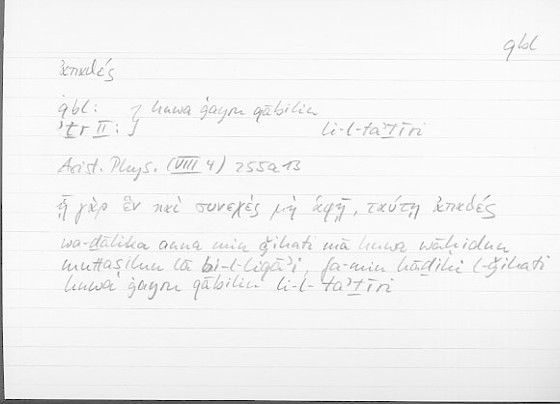 qbl
ἀπαθές
qbl: } huwa ġayru qābilin
ʾṯr II: } li-l-taʾṯīri
Arist. Phys. (VIII 4) 255a13
ᾗ γὰρ ἓν καὶ συνεχὲς μὴ ἁφῇ, ταύτῃ ἀπαθές
wa-ḏālika anna min ǧihati mā huwa wāḥidun
muttaṣilun lā bi-l-liqāʾi, fa-min hāḏihi l-ǧihati
huwa ġayru qābilin li-l-taʾṯīri